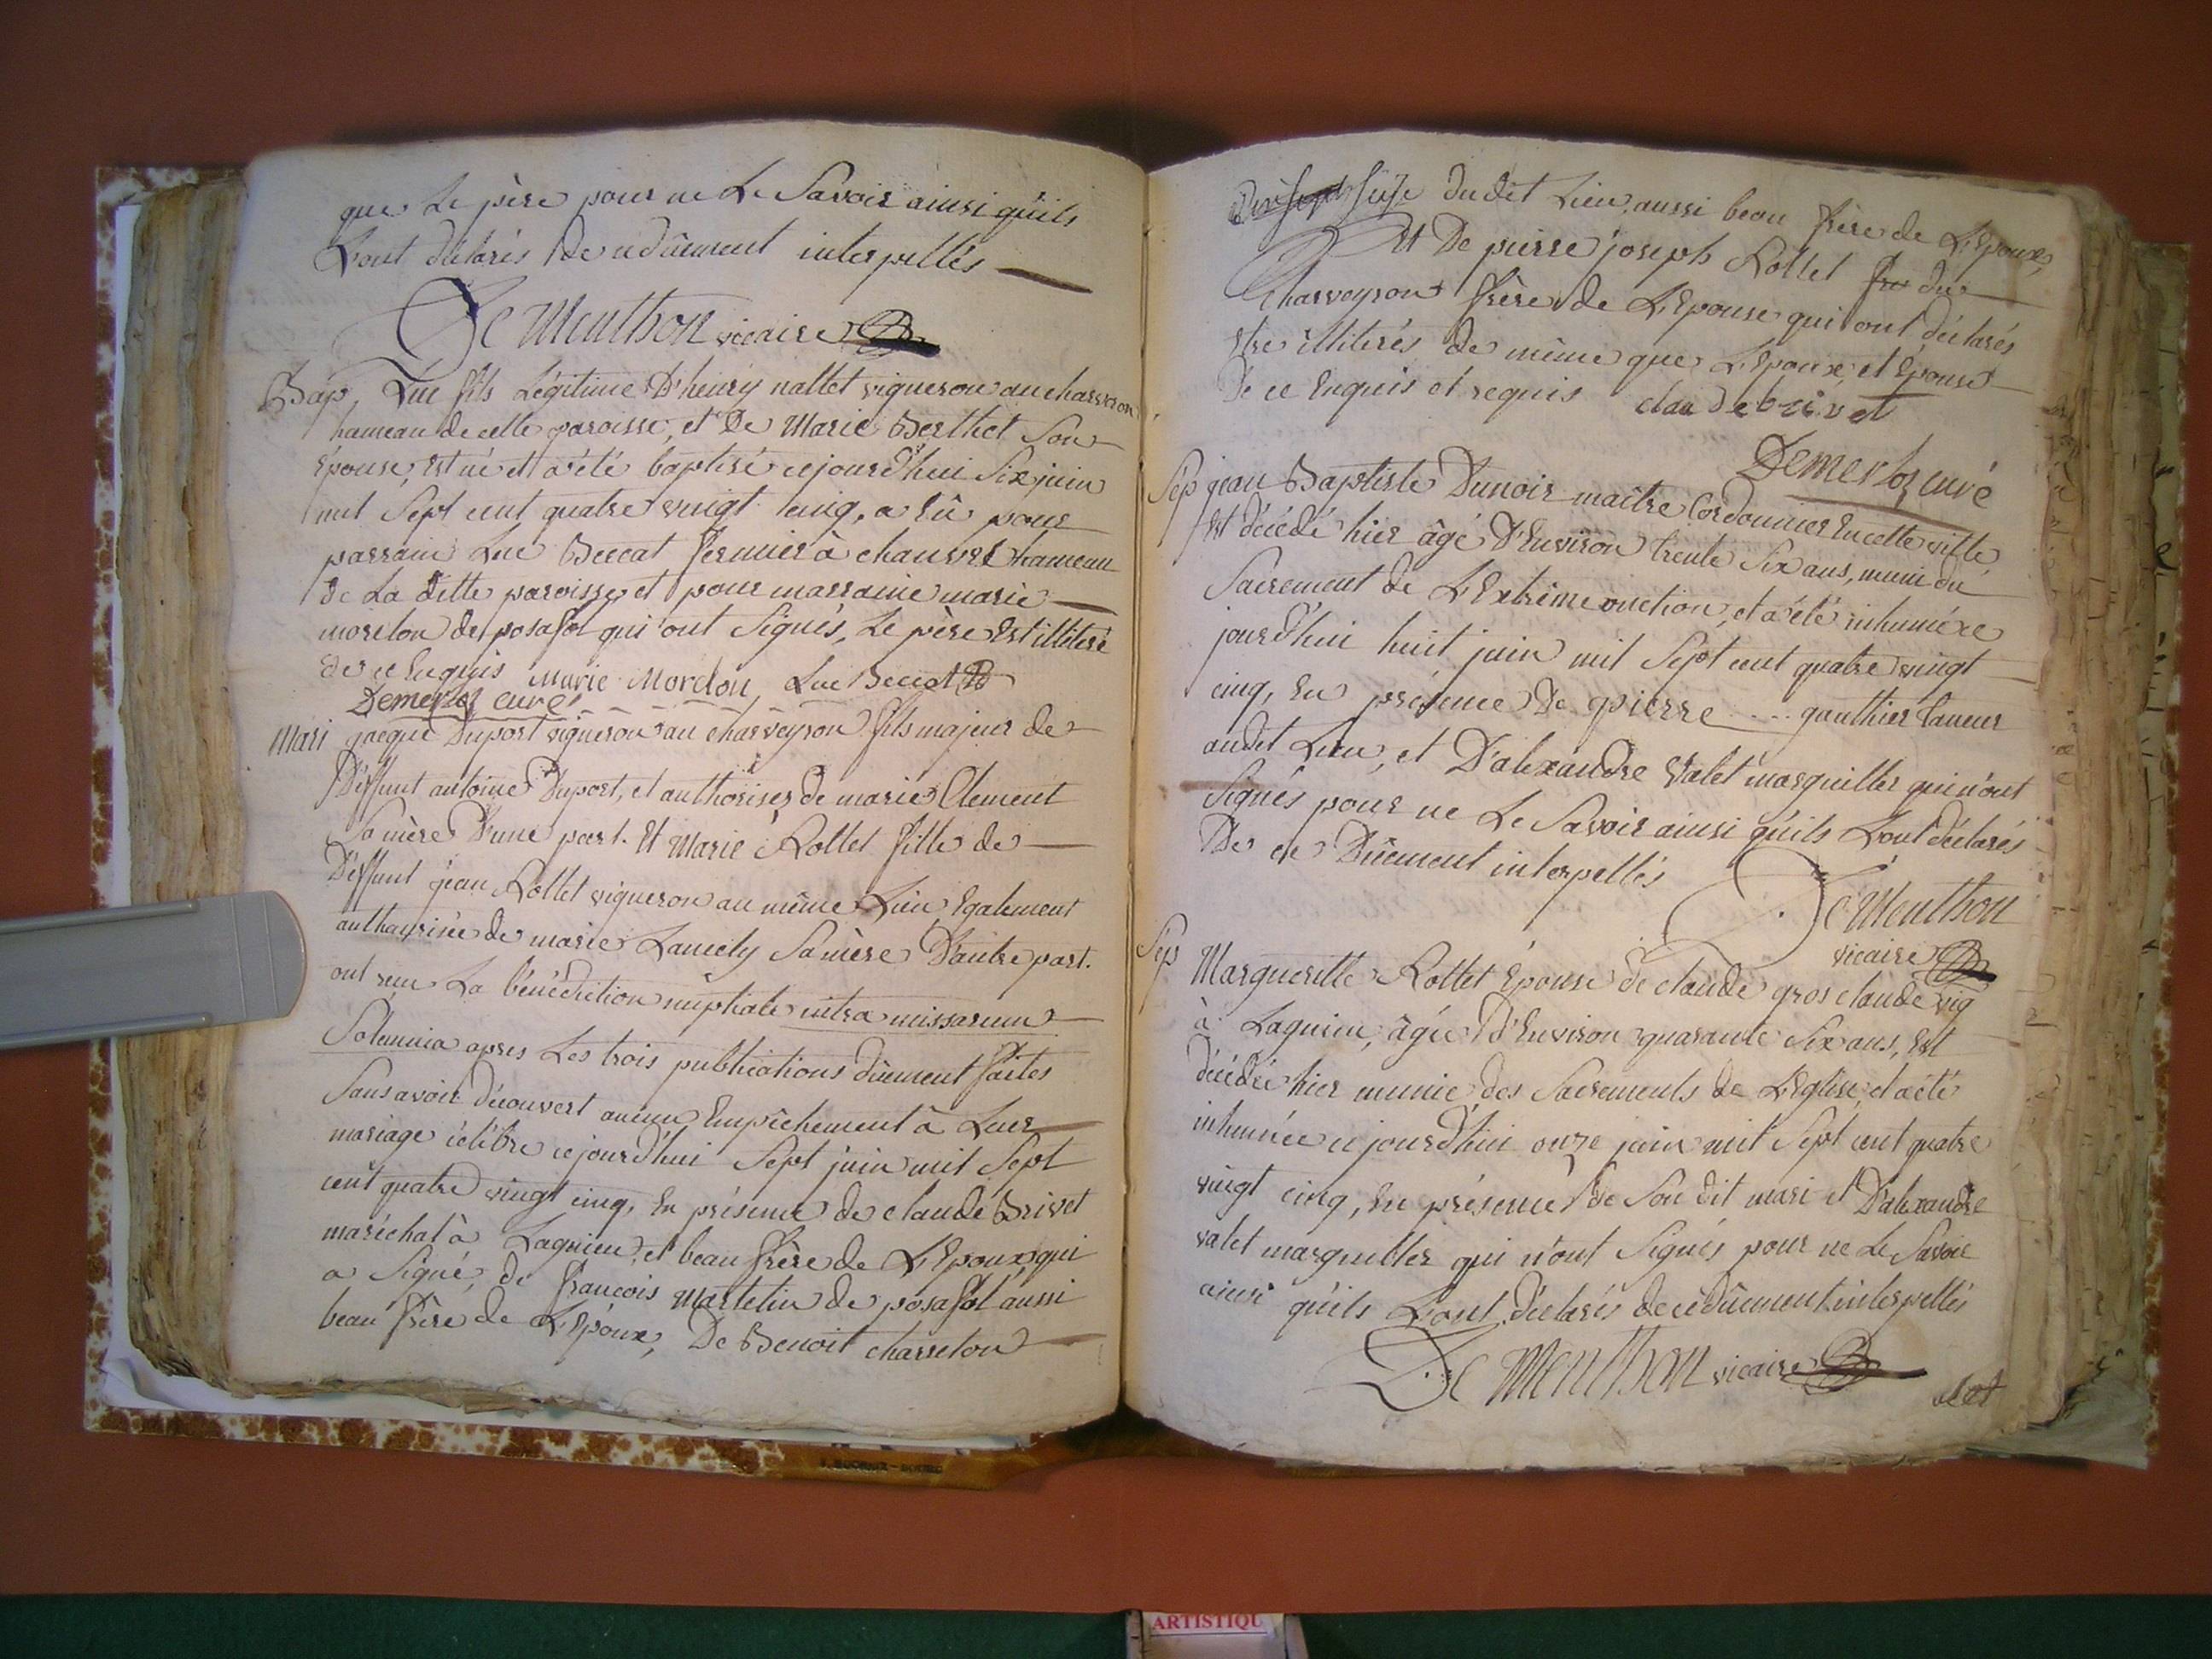 que Le père pour ne Le Savoir ainsi qu'ils
L'ont déclarés de ce dûement interpellés
De Menthon vicaire
Bap. Luc fils Légitime D'henry nallet vigneron au charveron
hameau de cette paroisse, et De Marie Berthet Son
Epouse, Est né et a été baptisé cejourd'hui Six juin
mil Sept cent quatre vingt cinq, a Eû pour
parrain Luc Beccat fermier à chauvre hameau
De La ditte paroisse et pour marraine marie
morelon de posafol qui ont Signés, Le père Est illitéré
de ce Enquis Marie Morelon, Luc Beccat
Demerloz curé
Mari jacque Duport vigneron au charveyron fils majeur de
Deffunt antoine Duport, et authorisés de marie Clement
Sa mère D'une part. Et Marie Rollet fille de
Deffunt jean Rollet vigneron au même Lieu Egalement
de marie Lancely Samère D'autre part.
ont reçu La bénédiction nuptiale intra missarum
Solemnia apres Les trois publications dûement faites
Sans avoir découvert aucun Empêchement à Leur
mariage célébre cejourd'hui Sept juin mil Sept
cent quatre vingt cinq, En présence de claude Brivet
maréchal à Lagnieu, et beau frère de L'Epoux, qui
a Signé, de francois Martelin de posafol aussi
beau frère de L'Epoux, De Benoit charreton
du dit Lieu, aussi beau frère de L'Epoux,
Et De pierre joseph Rollet du
Charveyron frère de L'Epouse qui ont déclarés
Etre illiterés de même que L'Epoux, et Epouse
De ce Enquis et requis claude brivet
Demerloz curé
Sep jean Baptiste Dunoir maître Cordonnier En cette ville
Est décédé hier âgé D'Environ trente Six ans, muni du
Sacrement de L'Extrême onction, et a été inhumé ce
jourd'hui huit juin mil Sept cent quatre vingt
cinq, En présence De pierre ... gauthier taneur
audit Lieu, et D'alexandre Valet marguiller qui n'ont
Signés pour ne Le Savoir ainsi qu'ils L'ont déclarés
De ce Dûement interpellés
De Menthon
vicaire
Sep Margueritte Rollet Epouse de claude gros claude vig
à Lagnieu, âgée D'Environ quarante Six ans, Est
décédée hier munie des Sacrements de L'Eglise, et a été
inhumée cejourd'hui onze juin mil Sept cent quatre
vingt cinq, En présence de Son dit mari et D'alexandre
valet marguiller qui n'ont Signés pour ne Le Savoir
ainsi qu'ils L'ont déclarés de ce dûement interpellés
De Menthon vicaire
ARTISTIQU